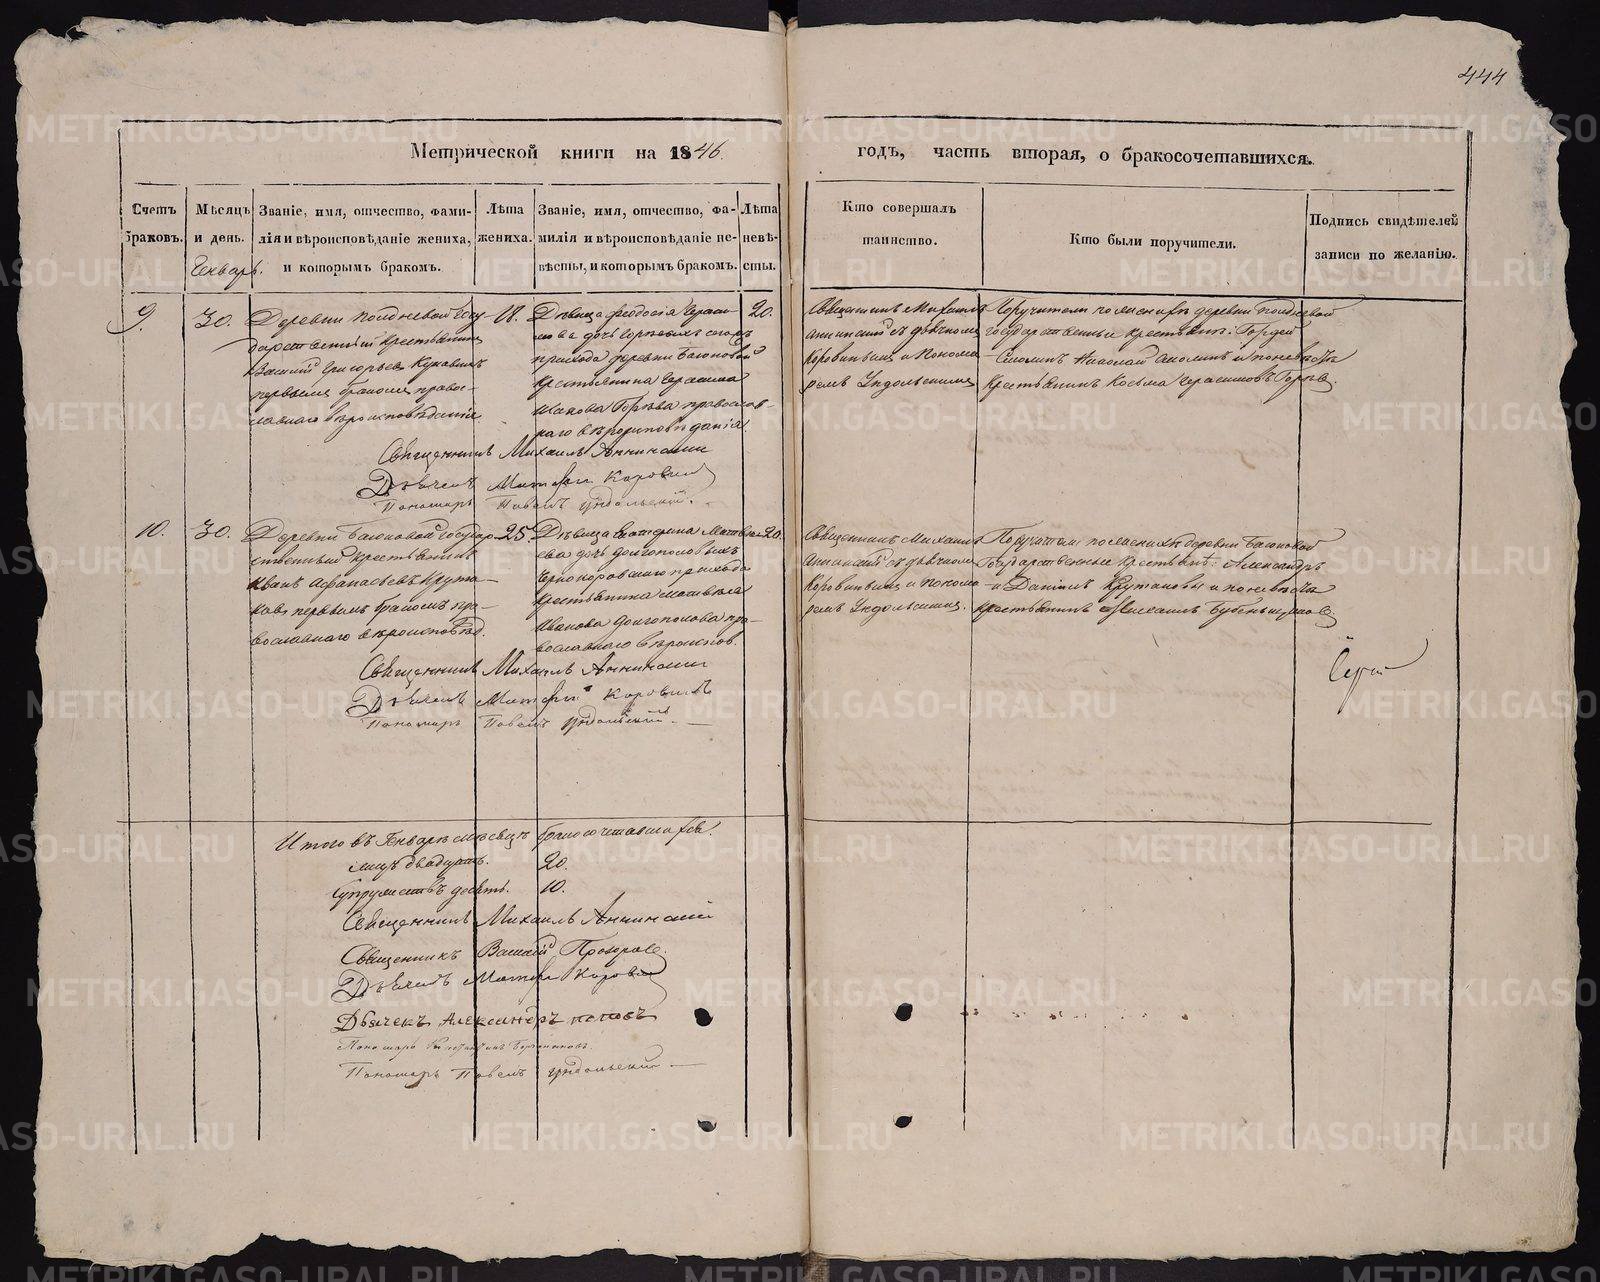 444
Метрической книги на 1846.
годъ, часть вторая, о бракосочетавшихся.
Счетъ браковъ.
Мѣсяцъ и день.
Январь.
Званіе, имя, отчество, фами-
лія и вѣроисповѣданіе жениха,
и которымъ бракомъ.
Лѣта
жениха.
Званіе, имя, отчество, фа-
милія и вѣроисповѣданіе не-
вѣсты, и которымъ бракомъ.
Лѣта
невѣ-
сты.
Кто совершалъ
таинство.
Кто были поручители.
Подпись свидѣтелей
записи по желанію.
9.
30.
Деревни
Василій Григорьевъ
первымъ бракомъ право-
славнаго вѣроисповѣданія
18.
Дѣвица Феодосія Гераси-
мова дочь
прихода деревни Баюновой
Крестьянина Герасима
православ-
наго вѣроисповѣданія.
20.
Священникъ Михаилъ
Аннинскій съ дьячкомъ
Коровинымъ и Понома-
ремъ Ундольскимъ
Поручители по женихѣ деревни
государственные крестьяне: Гордей
Николай и по невѣстѣ
Крестьянинъ Косьма Герасимовъ
Священникъ Михаилъ Аннинскій
Дьячекъ Матфей Коровинъ
Пономарь Павелъ Ундольскій.
10.
30.
Деревни Баюновой государ-
ственный крестьянинъ
Иванъ Афанасьевъ Крута-
ковъ первымъ бракомъ пра-
вославнаго вѣроисповѣд.
25.
Дѣвица Екатерина Матвѣ-
ева дочь Долгополовыхъ
Чернокоровскаго прихода
Крестьянина Матвѣя
Иванова Долгополова пра-
вославнаго вѣроиспов.
20.
Священникъ Михаилъ
Аннинскій съ дьячкомъ
Коровинымъ и Понома-
ремъ Ундольскимъ.
Поручители: по женихѣ деревни Баюновой
Государственные Крестьяне: Александръ
и Даніилъ Крутаковы и по невѣстѣ
крестьянинъ Михаилъ
Священникъ Михаилъ Аннинскій
Дьячекъ Матфей Коровинъ
Пономарь Павелъ Ундольскій.
Итого въ Январѣ мѣсяцѣ бракосочетавшихся.
лицъ двадцать. 20.
Супружествъ десять. 10.
Священникъ Михаилъ Аннинскій
Священникъ Василій
Дьячекъ Матфей Коровинъ
Дьячекъ Александръ Поповъ
Пономарь Константинъ
Пономарь Павелъ Ундольскій
METRIKI.GASO-URAL.RU